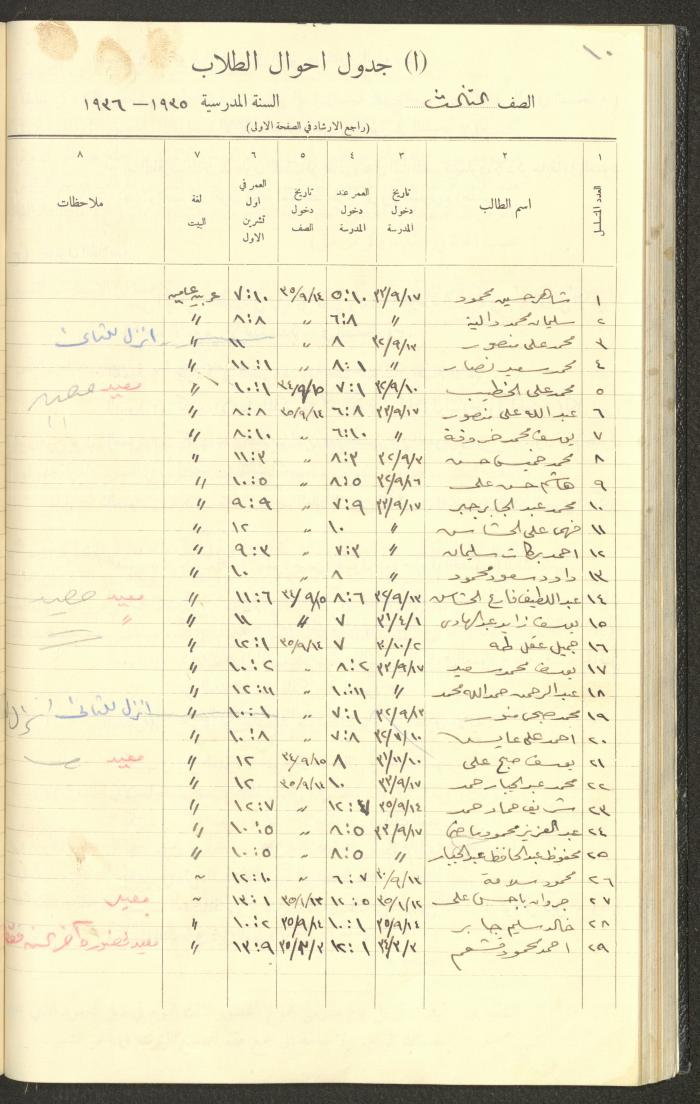 ١٠
(١) جدول احوال الطلاب
الصف الثالث السنة المدرسية ١٩٣٥ — ١٩٣٦
(راجع الارشاد في الصفحة الاولى)
١ ٢ ٣ ٤ ٥ ٦ ٧ ٨
العدد المتسلسل اسم الطالب تاريخ دخول المدرسة العمر عند دخول المدرسة تاريخ دخول الصف العمر في اول تشرين الاول لغة البيت ملاحظات
١ شاهر حسين محمود ٣٣/٩/١٧ ٥:١٠ ٣٥/٩/١٤ ٧:١٠ عربية عامية
٢ سليمان محمد دالية " ٦:٨ " ٨:٨ "
٣ محمد علي منصور ٣٢/٩/١٣ ٨ " ١١ " انزل للثاني
٤ محمد سعيد نصار " ٨:١ " ١١:١ "
٥ محمد علي الخطيب ٣٢/٩/١٠ ٧:١ ٣٤/٩/١٥ ١٠:١ " معيد
٦ عبد الله علي منصور ٣٣/٩/١٧ ٦:٨ ٣٥/٩/١٤ ٨:٨ "
٧ يوسف محمد خروفة " ٦:١٠ " ٨:١٠ "
٨ محمد خميس حسن ٣٢/٩/٣ ٨:٣ " ١١:٣ "
٩ هاشم حسن علي ٣٣/٩/١٦ ٨:٥ " ١٠:٥ "
١٠ محمد عبد الجابر جبر ٣٣/٩/١٧ ٧:٩ " ٩:٩ "
١١ فهمي علي " ١٠ " ١٢ "
١٢ احمد بركات سليمان " ٧:٣ " ٩:٣ "
١٣ داود سعود محمود " ٨ " ١٠ "
١٤ عبد اللطيف ٣٢/٩/١٣ ٨:٦ ٣٤/٩/١٥ ١١:٦ " معيد
١٥ يوسف زايد عبد الهادي ٣١/٤/١ ٧ " ١١ " "
١٦ جميل عقل طه ٣٠/١٠/٢ ٧ ٣٥/٩/١٤ ١٢:١ "
١٧ يوسف محمد سعيد ٣٣/٩/١٧ ٨:٢ " ١٠:٢ "
١٨ عبد الرحمن حمد الله محمد " ١٠:١١ " ١٢:١١ "
١٩ محمد صبحي ٣٢/٩/١٣ ٧:١ " ١٠:١ " انزل للثاني
٢٠ احمد علي عايس ٣٢/٧/١٠ ٧:٨ " ١٠:٨ "
٢١ يوسف صبح علي ٣١/١١/١٠ ٨ ٣٤/٩/١٥ ١٢ " معيد
٢٢ محمد عبد الجبار حمد ٣٣/٩/١٧ ١٠ ٣٥/٩/١٤ ١٢ "
٢٣ شريف حماد حمد ٣٥/٩/١٤ ١٢:٧ " ١٢:٧ "
٢٤ عبد العزيز محمود ٣٣/٩/١٧ ٨:٥ " ١٠:٥ "
٢٥ محفوظ عبد الحافظ عبد الجبار " ٨:٥ " ١٠:٥ "
٢٦ محمود سلامة ٣٠/٩/١٣ ٦:٧ " ١٢:١٠ "
٢٧ علي ٣٥/١/١٢ ١٢:٥ ٣٥/١/١٣ ١٣:١ " معيد
٢٨ خالد سليم جابر ٣٥/٩/١٤ ١٠:١ ٣٥/٩/١٤ ١٠:٢ "
٢٩ احمد محمود قشعم ٣٤/٣/٣ ١٢:١ ٣٥/٣/٣ ١٣:٩ " معيد